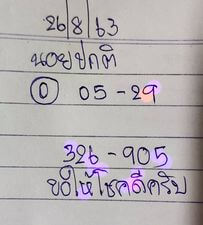 26|8|63
นอยปกติ
0 05-29
326-905
ขอให้โชคดีครับ